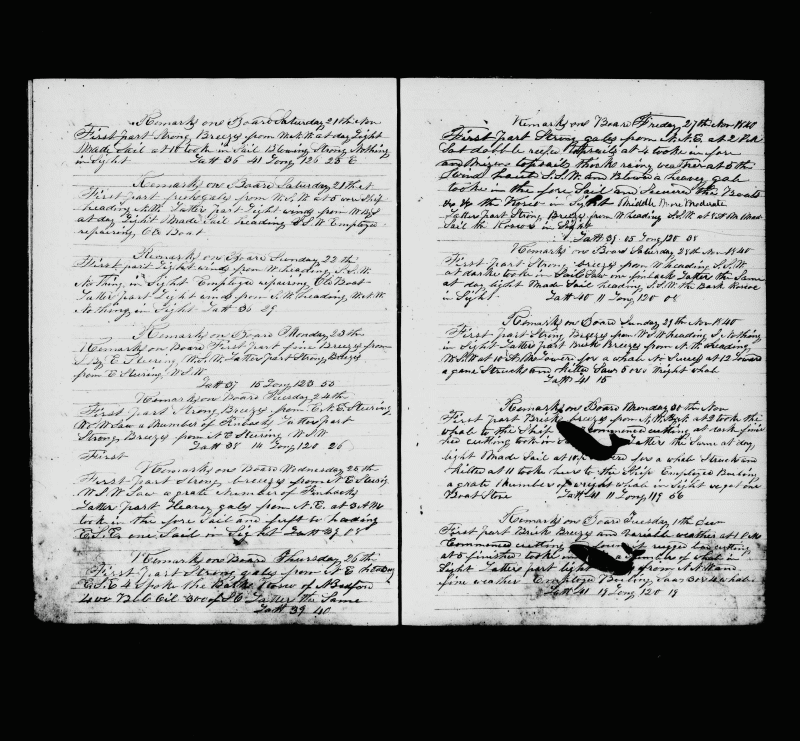 Remarks on Board Saturday 21th Nov
First part Strong Breezes from W.N.W. at day Light
Made Sail at 10 took in Sail Blowing Strong Nothing
in Sight Latt 36 41 Long 126 23 E
Remarks on Board Saturday 21th
First part fresh gales from W.S.W. at 5 wore Ship
heading Latter part Light winds from W By S
at day Light Made Sail heading S.S.W. Employed
repairing Boat
Remarks on Board Sunday 22th
First part Light winds from W heading S.S.W.
Nothing in Sight Employed repairing Boat
Latter part Light winds from S.W. heading W.N.W.
Nothing in Sight Latt 36 29
Remarks on Board Monday 23th
Remarks on Board First part fine Breezes from
S By E Steering W.S.W. Latter part Strong Breezes
from E Steering W.S.W.
Latt 37 15 Long 123 55
Remarks on Board Tuesday 24th
First part Strong Breezes from E.N.E. Steering
W.S.W. Saw a Number of Finbacks Latter part
Strong Breezes from N.E. Steering W.S.W.
Latt 38 14 Long 120 26
First
Remarks on Board Wednesday 25th
First part Strong breezes from N.E. Steering
W.S.W. Saw a grate Number of Finbacks
Latter part Heavey gales from N.E. at 3 AM
took in the fore Sail and heading
E.S.E. one Sail in Sight Latt 39 08
Remarks on Board Thursday 26th
First part Strong gales from N.E. heading
E.S.E. Spoke the Bark Roscoe of N Bedford
400 Bbls Oil 300 of Latter the Same
Latt 39 40
Remarks on Board Friday 27th Nov 1840
First part Strong gales from N.N.E. at 2 PM
Sat dobble reefs topsails at 4 took in fore
and topsails thick rainy weather at 5 the
Wind hauld S.S.W. and Blowd a heavey gale
tooke in the fore Sail and Secured the Boats
the Roscoe in Sight Middle More Moderate
Latter part Strong Breezes from W heading S.S.W. at 8 AM Made
Sail the Roscoe in Sight
Latt 39 05 Long 120 08
Remarks on Board Saturday 28th Nov 1840
First part Strong breezes from W heading S.S.W.
at darke took in Sail Saw one finback Latter the Same
at day light Made Sail heading S.S.W. the Bark Roscoe
in Sight Latt 40 11 Long 120 08
Remarks on Board Sunday 29th Nov 1840
First part Strong Breezes from W.S.W. heading S. Nothing
in Sight Latter part Brisk Breezes from N.W. heading
W.S.W. at 10 AM Lowered for a whale No Success at 12 Lowered
againe Struck and Killed Saw 5 or 6 Right whale
Latt 41 15
Remarks on Board Monday 30th Nov
First part Brisk breezes from N.W. at 2 took the
whale to the Ship Commenced cutting at dark finis
hed cutting took in Latter the Same at day
light Made Sail at 10 lowered for a whale Struck and
Killed at 11 took her to the Ship Employed Boiling
a grate Number of right whale in Sight
Boat Stove Latt 41 11 Long 119 56
Remarks on Board Tuesday 1th Dec
First part Brisk Breezes and Variable weather at 1 PM
Commenced cutting cutting
at 5 finished tooke in a Number of whale in
Sight Latter part light from N.W. and
fine weather Employed Boiling Saw 3 or 4 whale
Latt 41 19 Long 120 19